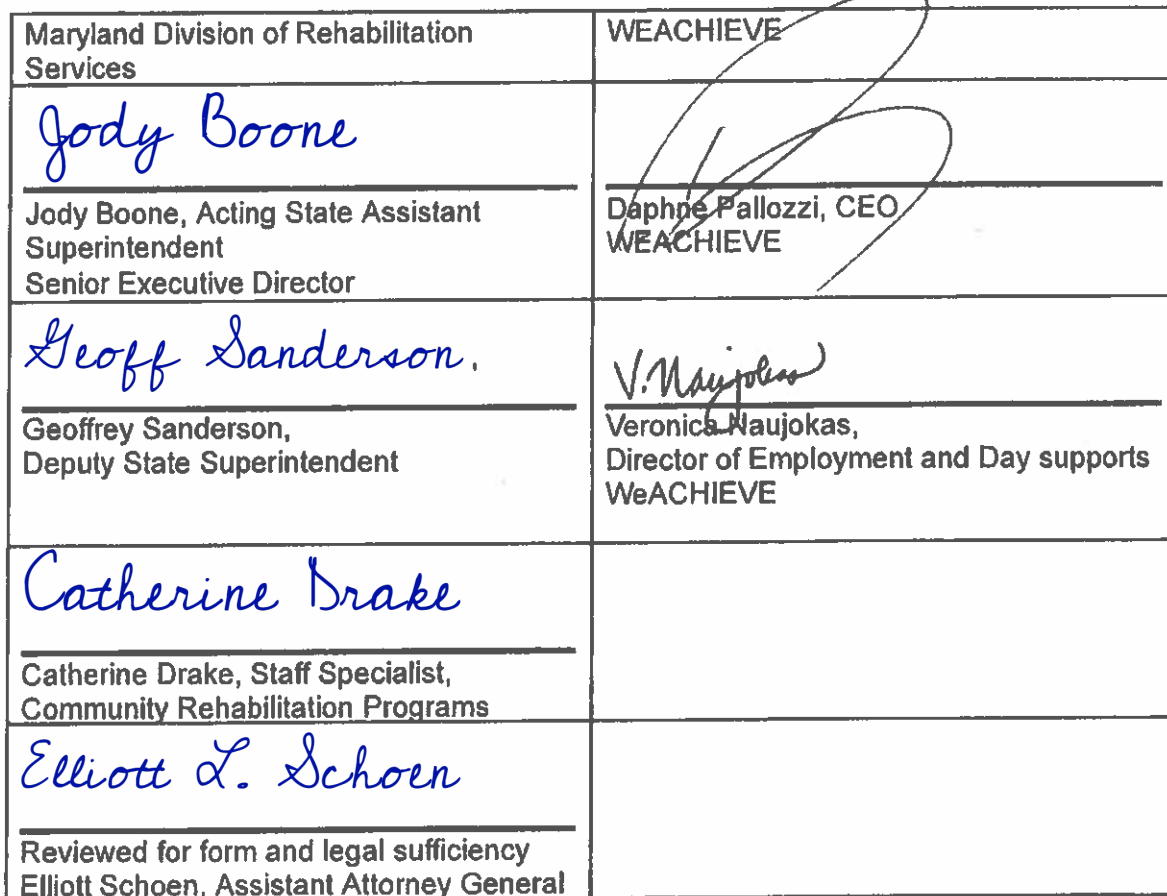 Maryland Division of Rehabilitation
Services
WEACHIEVE
Jody Boone
Jody Boone, Acting State Assistant
Superintendent
Senior Executive Director
Daphne Pallozzi, CEO
WEACHIEVE
Geoff Sanderson.
Geoffrey Sanderson,
Deputy State Superintendent
V. Naujokas
Veronica Naujokas,
Director of Employment and Day supports
WeACHIEVE
Catherine Drake
Catherine Drake, Staff Specialist,
Community Rehabilitation Programs
Elliott L. Schoen
Reviewed for form and legal sufficiency
Elliott Schoen, Assistant Attorney General